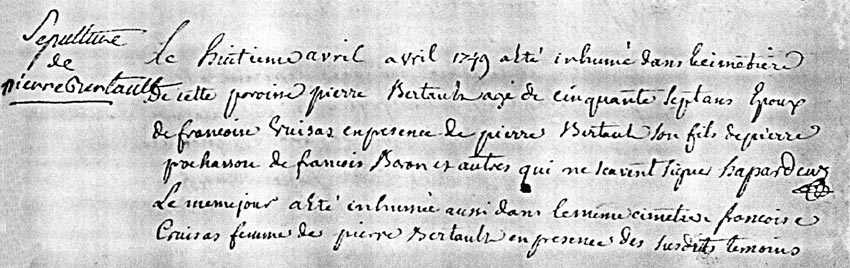 Sepulture
de
pierre Bertault
Le huitieme avril avril 1749 a été inhumé dans le cimetiere
De cette paroisse pierre Bertault agé de cinquante sept ans Epoux
de francoise Cruisas en presence de pierre Bertault son fils de pierre
pochasson de francois Baron et autres qui ne scavent signe
Le meme jour a été inhumée aussi dans le meme cimetiere francoise
Cruisas femme de pierre Bertault en presence des susdits temoins